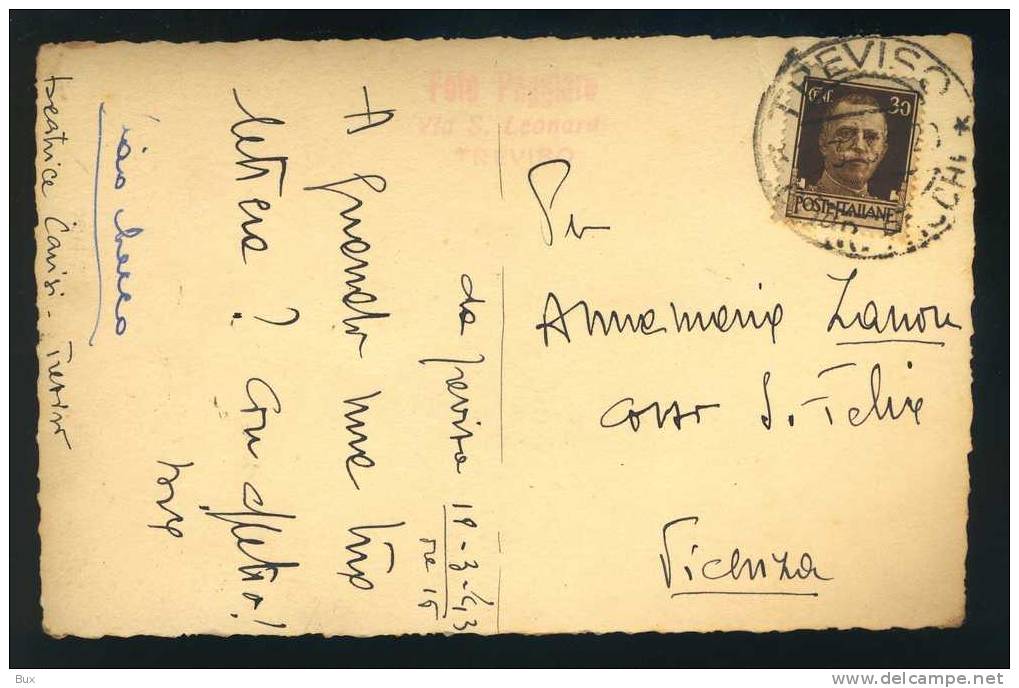 Foto
Via S. Leonardo
TREVISO
TREVISO
Ct. 30
POSTE ITALIANE
da Treviso 18-3-43
ore 16
A quando una tua
lettera? Con affetto!
Ciao bacio
Beatrice - Treviso
Annamaria Zanon
corso S. Felice
Vicenza
Bux
www.delcampe.net